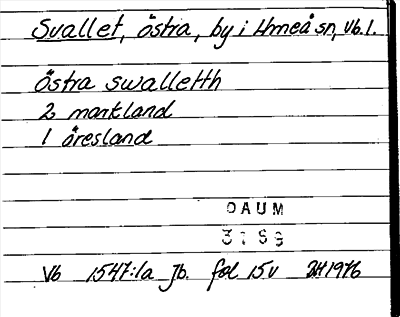 Svallet, östra, by i Umeå sn, Vb.l.
östra swalletth
2 markland
1 öresland
DAUM
Vb 1547:1a Jb. fol 15v 1976